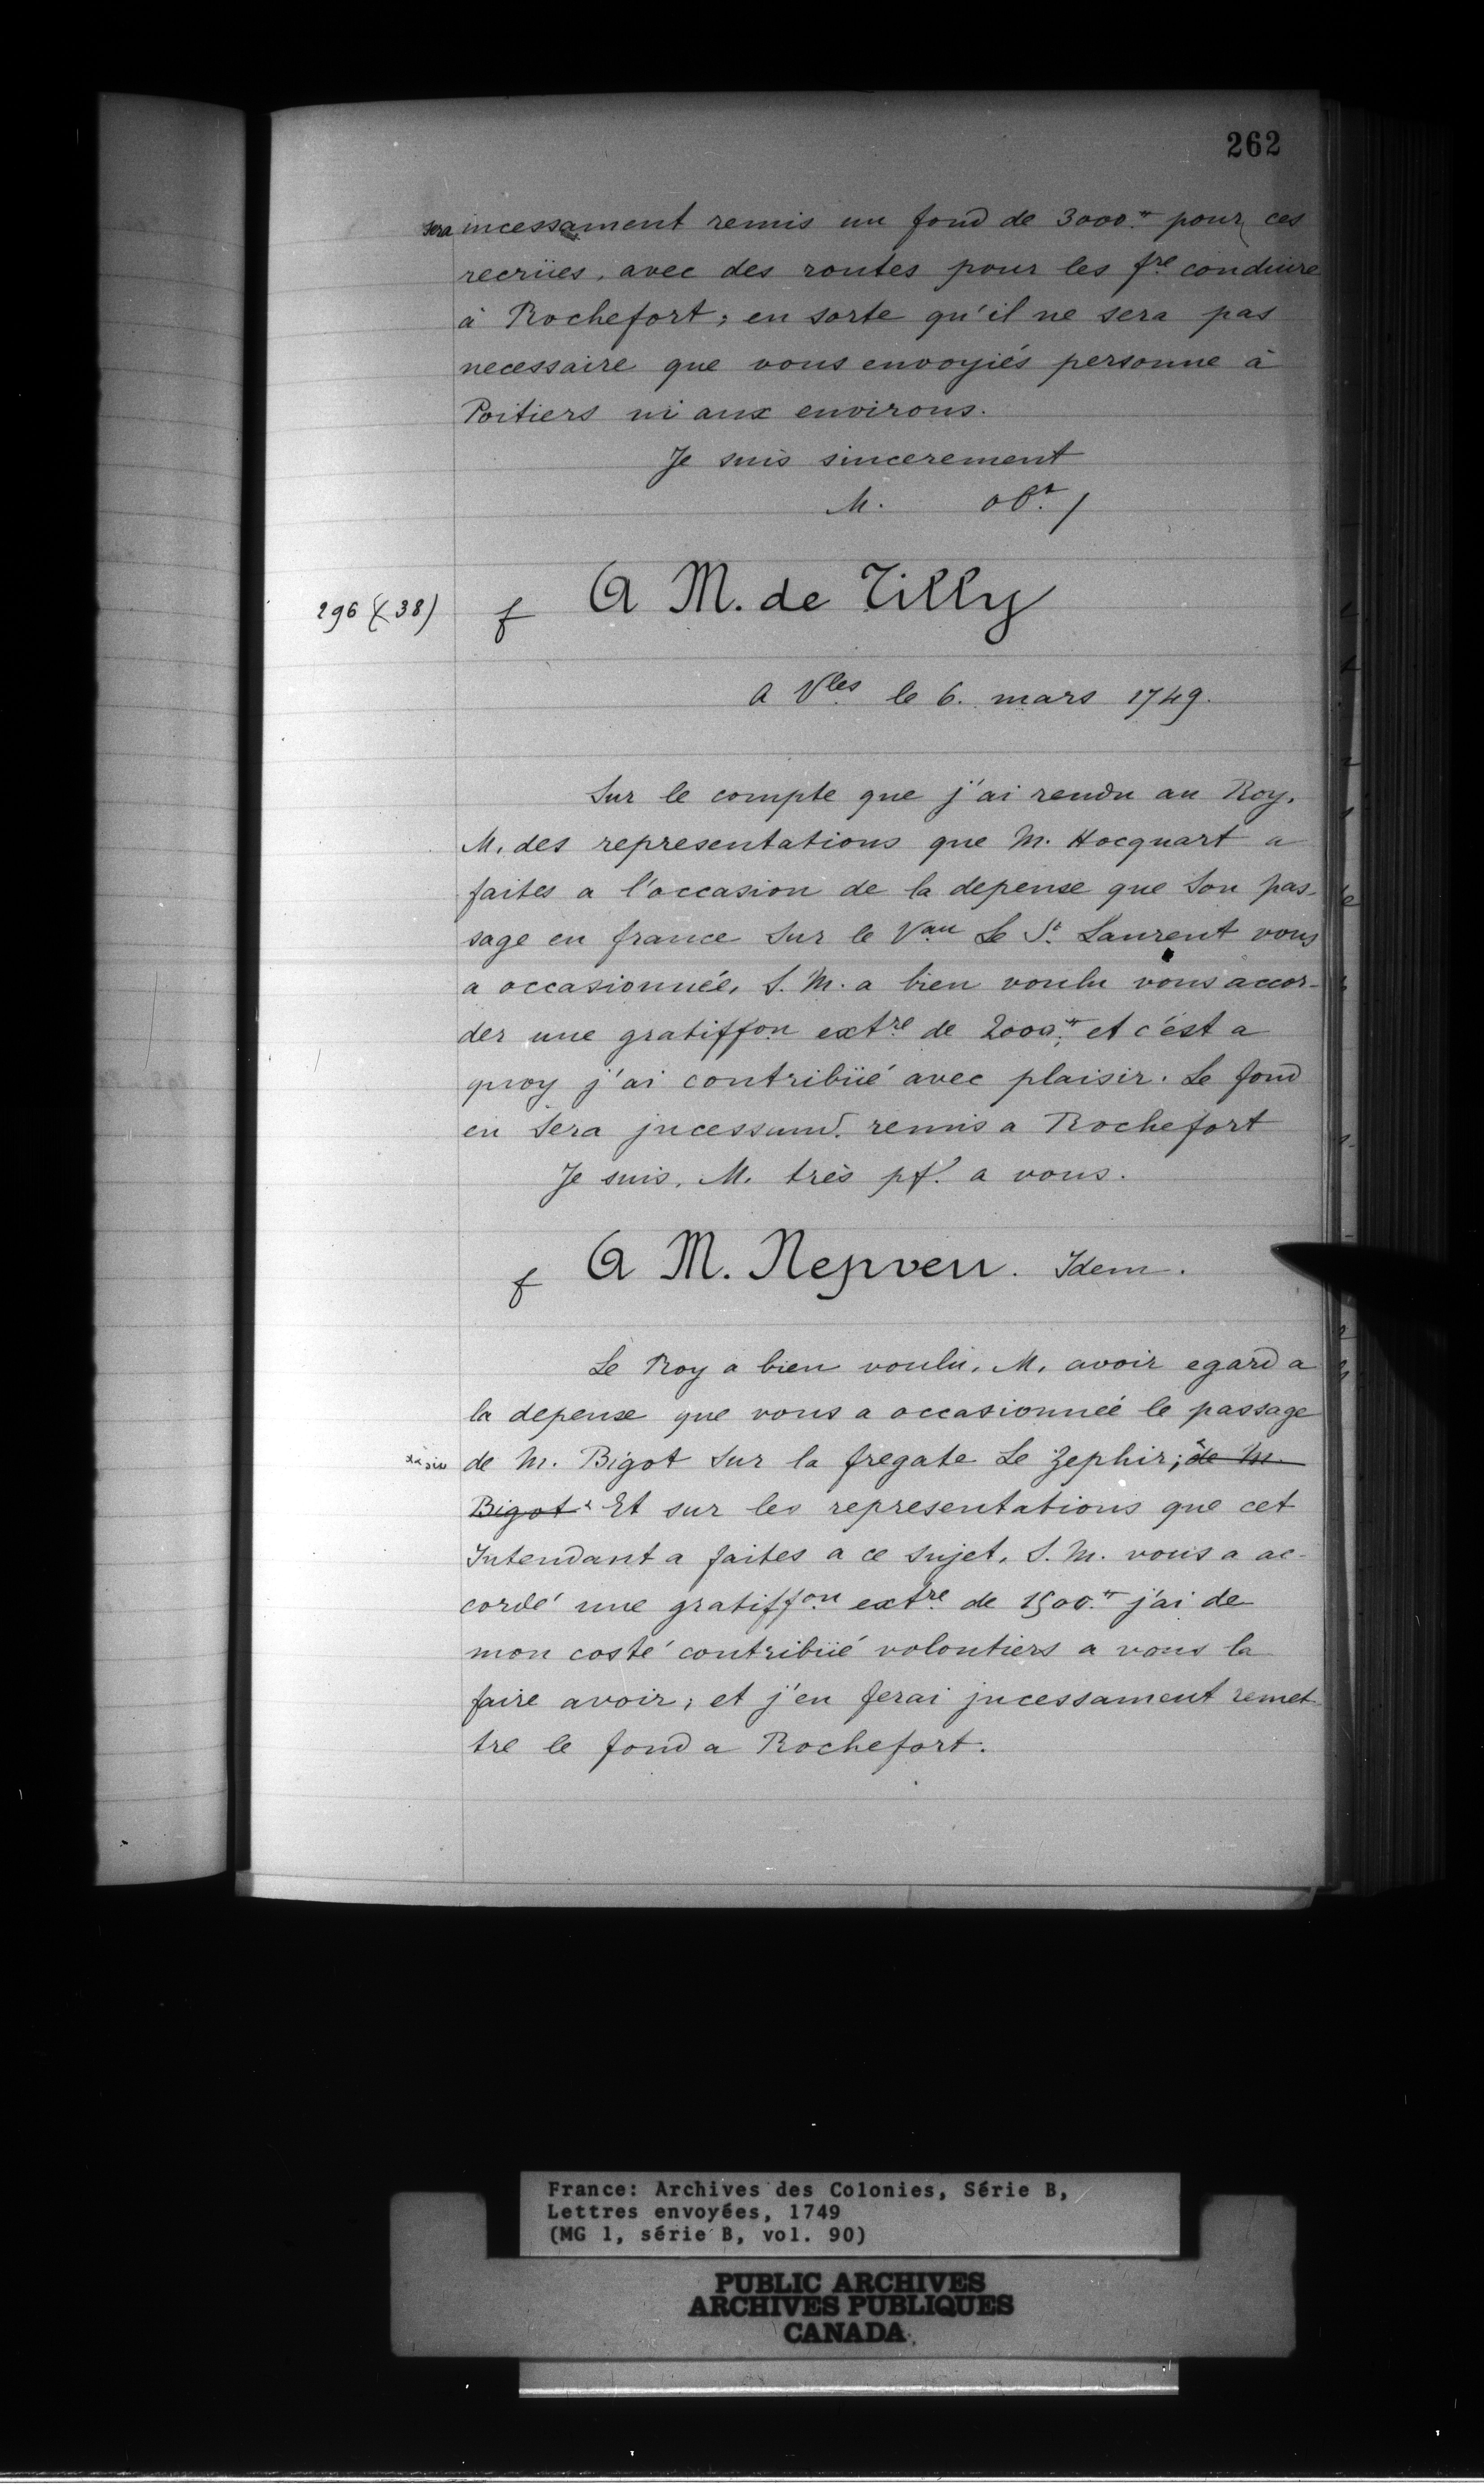 262
sera incessament remis un fond de 3000.tt pour ces
recrües, avec des routes pour les fre conduire
à Rochefort; en sorte qu'il ne sera pas
necessaire que vous envoyiés personne à
Poitiers ni aux environs.
Je suis sincerement
M.
296 (38) f A M. de Tilly
A Vles le 6. mars 1749.
Sur le compte que j'ai rendu au Roy,
M. des representations que M. Hocquart a
faites a l'occasion de la depense que Son pas-
sage en france Sur le Vau Le St. Laurent vous
a occasionnée, S. M. a bien voulu vous accor-
der une gratiffon extre de 2000.tt et c'est a
quoy j'ai contribüé avec plaisir. Le fond
en Sera jncessamt. remis a Rochefort
Je suis, M. très pft. a vous.
f A M. Nepveu. Idem.
Le Roy a bien voulu, M. avoir egard a
la depense que vous a occasionnée le passage
de M. Bigot Sur la fregate Le Zephir; de M.
Bigot x Et sur les representations que cet
Intendant a faites a ce Sujet, S. M. vous a ac-
cordé une gratiffon extre de 1500.tt j'ai de
mon costé contribüé volontiers a vous la
faire avoir; et j'en ferai jncessament remet-
tre le fond a Rochefort.
France: Archives des Colonies, Série B,
Lettres envoyées, 1749
(MG 1, série B, vol. 90)
PUBLIC ARCHIVES
ARCHIVES PUBLIQUES
CANADA